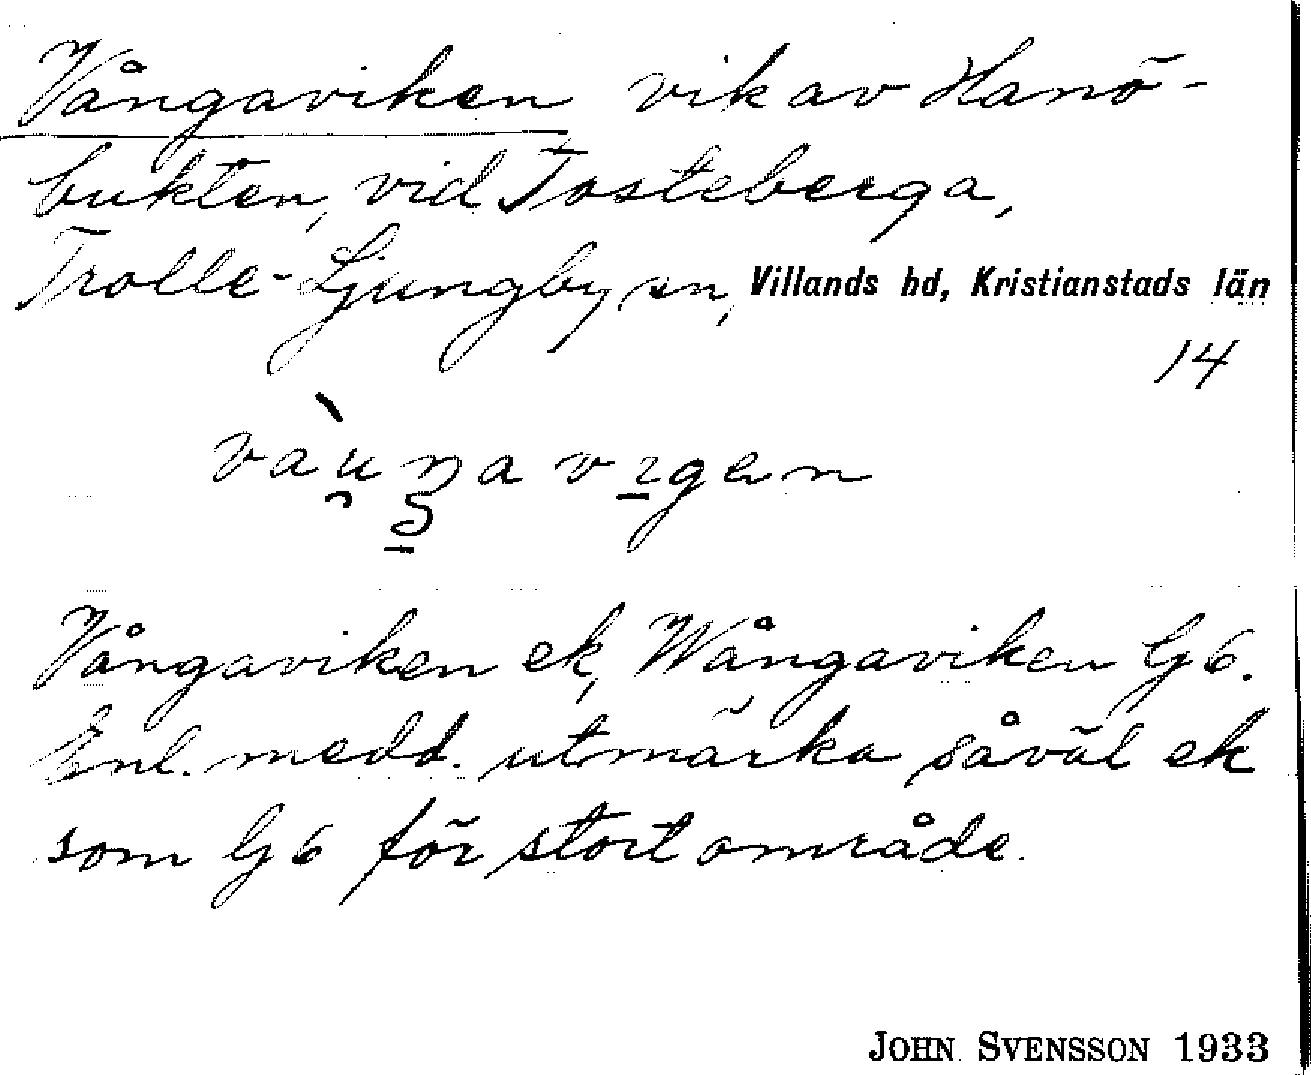 Vångaviken vik av Hanö-
bukten, vid Tosteberga,
Trolle-Ljungby sn, Villands hd, Kristianstads län
14
Vångaviken ek, Wångaviken G 6.
Enl. medd. utmärka såväl ek
som G 6 för stort område.
JOHN SVENSSON 1933